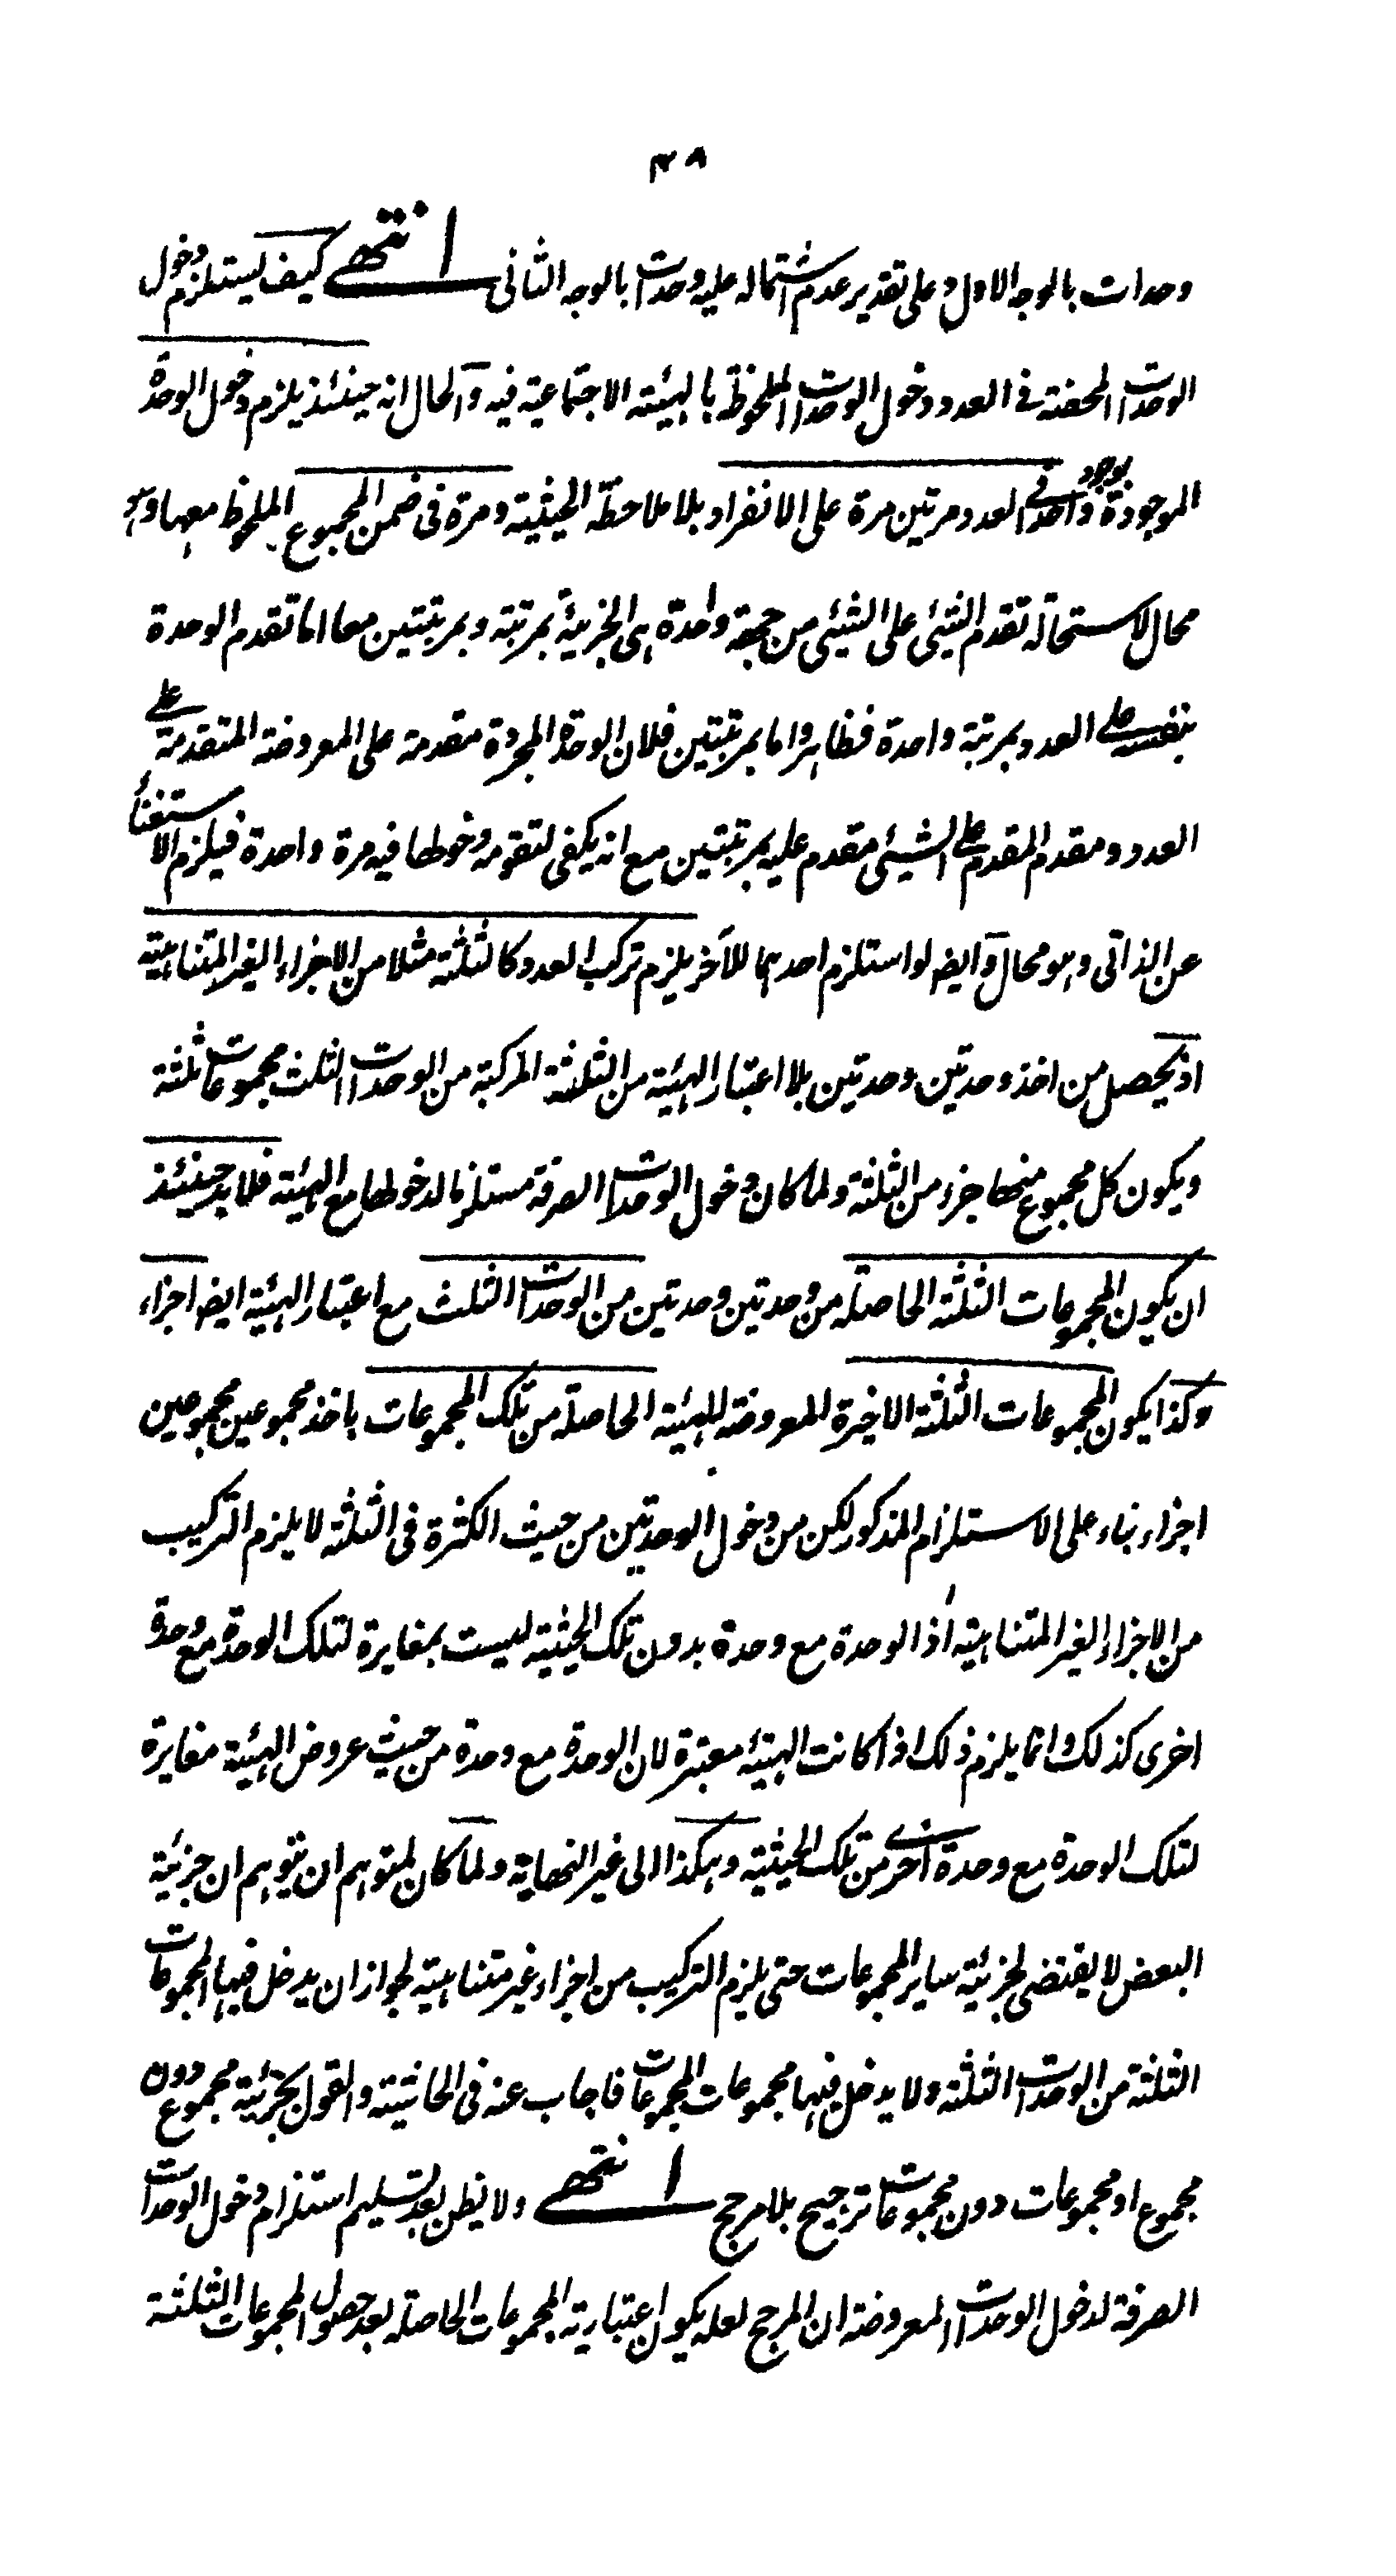 ٣٨
وحدات بالوجه الاول وعلى تقدير عدم اشتماله عليه وحدات بالوجه الثانى انتهى كيف يستلزم دخول
الوحدات المحضة فى العدد دخول الوحدات الملحوظة بالهيئة الاجتماعية فيه والحال انه حينئذ يلزم دخول الوحدة
الموجودة بوجود واحد فى العدد مرتين مرة على الانفراد بلا ملاحظة الحيثية ومرة فى ضمن المجموع الملحوظ معها وهو
محال لاستحالة تقدم الشيئى على الشيئى من جهة واحدة هى الجزئية بمرتبة وبمرتبتين معا اما تقدم الوحدة
بنفسها على العدد بمرتبة واحدة فظاهر واما بمرتبتين فلان الوحدة المجردة مقدمة على المعروضة المتقدمة على
العدد ومقدم المقدم على الشيئى مقدم عليه بمرتبتين مع انه يكفى لتقومه دخولها فيه مرة واحدة فيلزم الاستغناء
عن الذاتى وهو محال وايض لو استلزم احدهما للآخر يلزم تركب العدد كالثلثة مثلا من الاجزاء الغير المتناهية
اذ يحصل من اخذ وحدتين وحدتين بلا اعتبار الهيئة من الثلثة المركبة من الوحدات الثلث مجموعات ثلثة
ويكون كل مجموع منها جزء من الثلثة ولما كان دخول الوحدات الصرفة مستلزما لدخولها مع الهيئة فلا بد حينئذ
ان يكون المجموعات الثلثة الحاصلة من وحدتين وحدتين من الوحدات الثلث مع اعتبار الهيئة ايض اجزاء
وكذا يكون المجموعات الثلثة الاخيرة المعروضة للهيئة الحاصلة من تلك المجموعات باخذ مجموعين مجموعين
اجزاء بناء على الاستلزام المذكور لكن من دخول الوحدتين من حيث الكثرة فى الثلثة لا يلزم التركيب
من الاجزاء الغير المتناهية اذ الوحدة مع وحدة بدون تلك الحيثية ليست بمغايرة لتلك الوحدة مع وحدة
اخرى كذلك وانما يلزم ذلك اذا كانت الهيئة معتبرة لان الوحدة مع وحدة من حيث عروض الهيئة مغايرة
لتلك الوحدة مع وحدة اخرى من تلك الحيثية وهكذا الى غير النهاية ولما كان لمتوهم ان يتوهم ان جزئية
البعض لا يقتضى لجزئية ساير المجموعات حتى يلزم التركيب من اجزاء غير متناهية لجواز ان يدخل فيها المجموعات
الثلثة من الوحدات الثلثة ولا يدخل فيها مجموعات المجموعات فاجاب عنه فى الحاشية والقول بجزئية مجموع دون
مجموع او مجموعات دون مجموعات ترجيح بلا مرجح انتهى ولا يظن بعد تسليم استلزام دخول الوحدات
الصرفة لدخول الوحدات المعروضة ان المرجح لعله يكون اعتبارية المجموعات الحاصلة بعد حصول المجموعات الثلثة